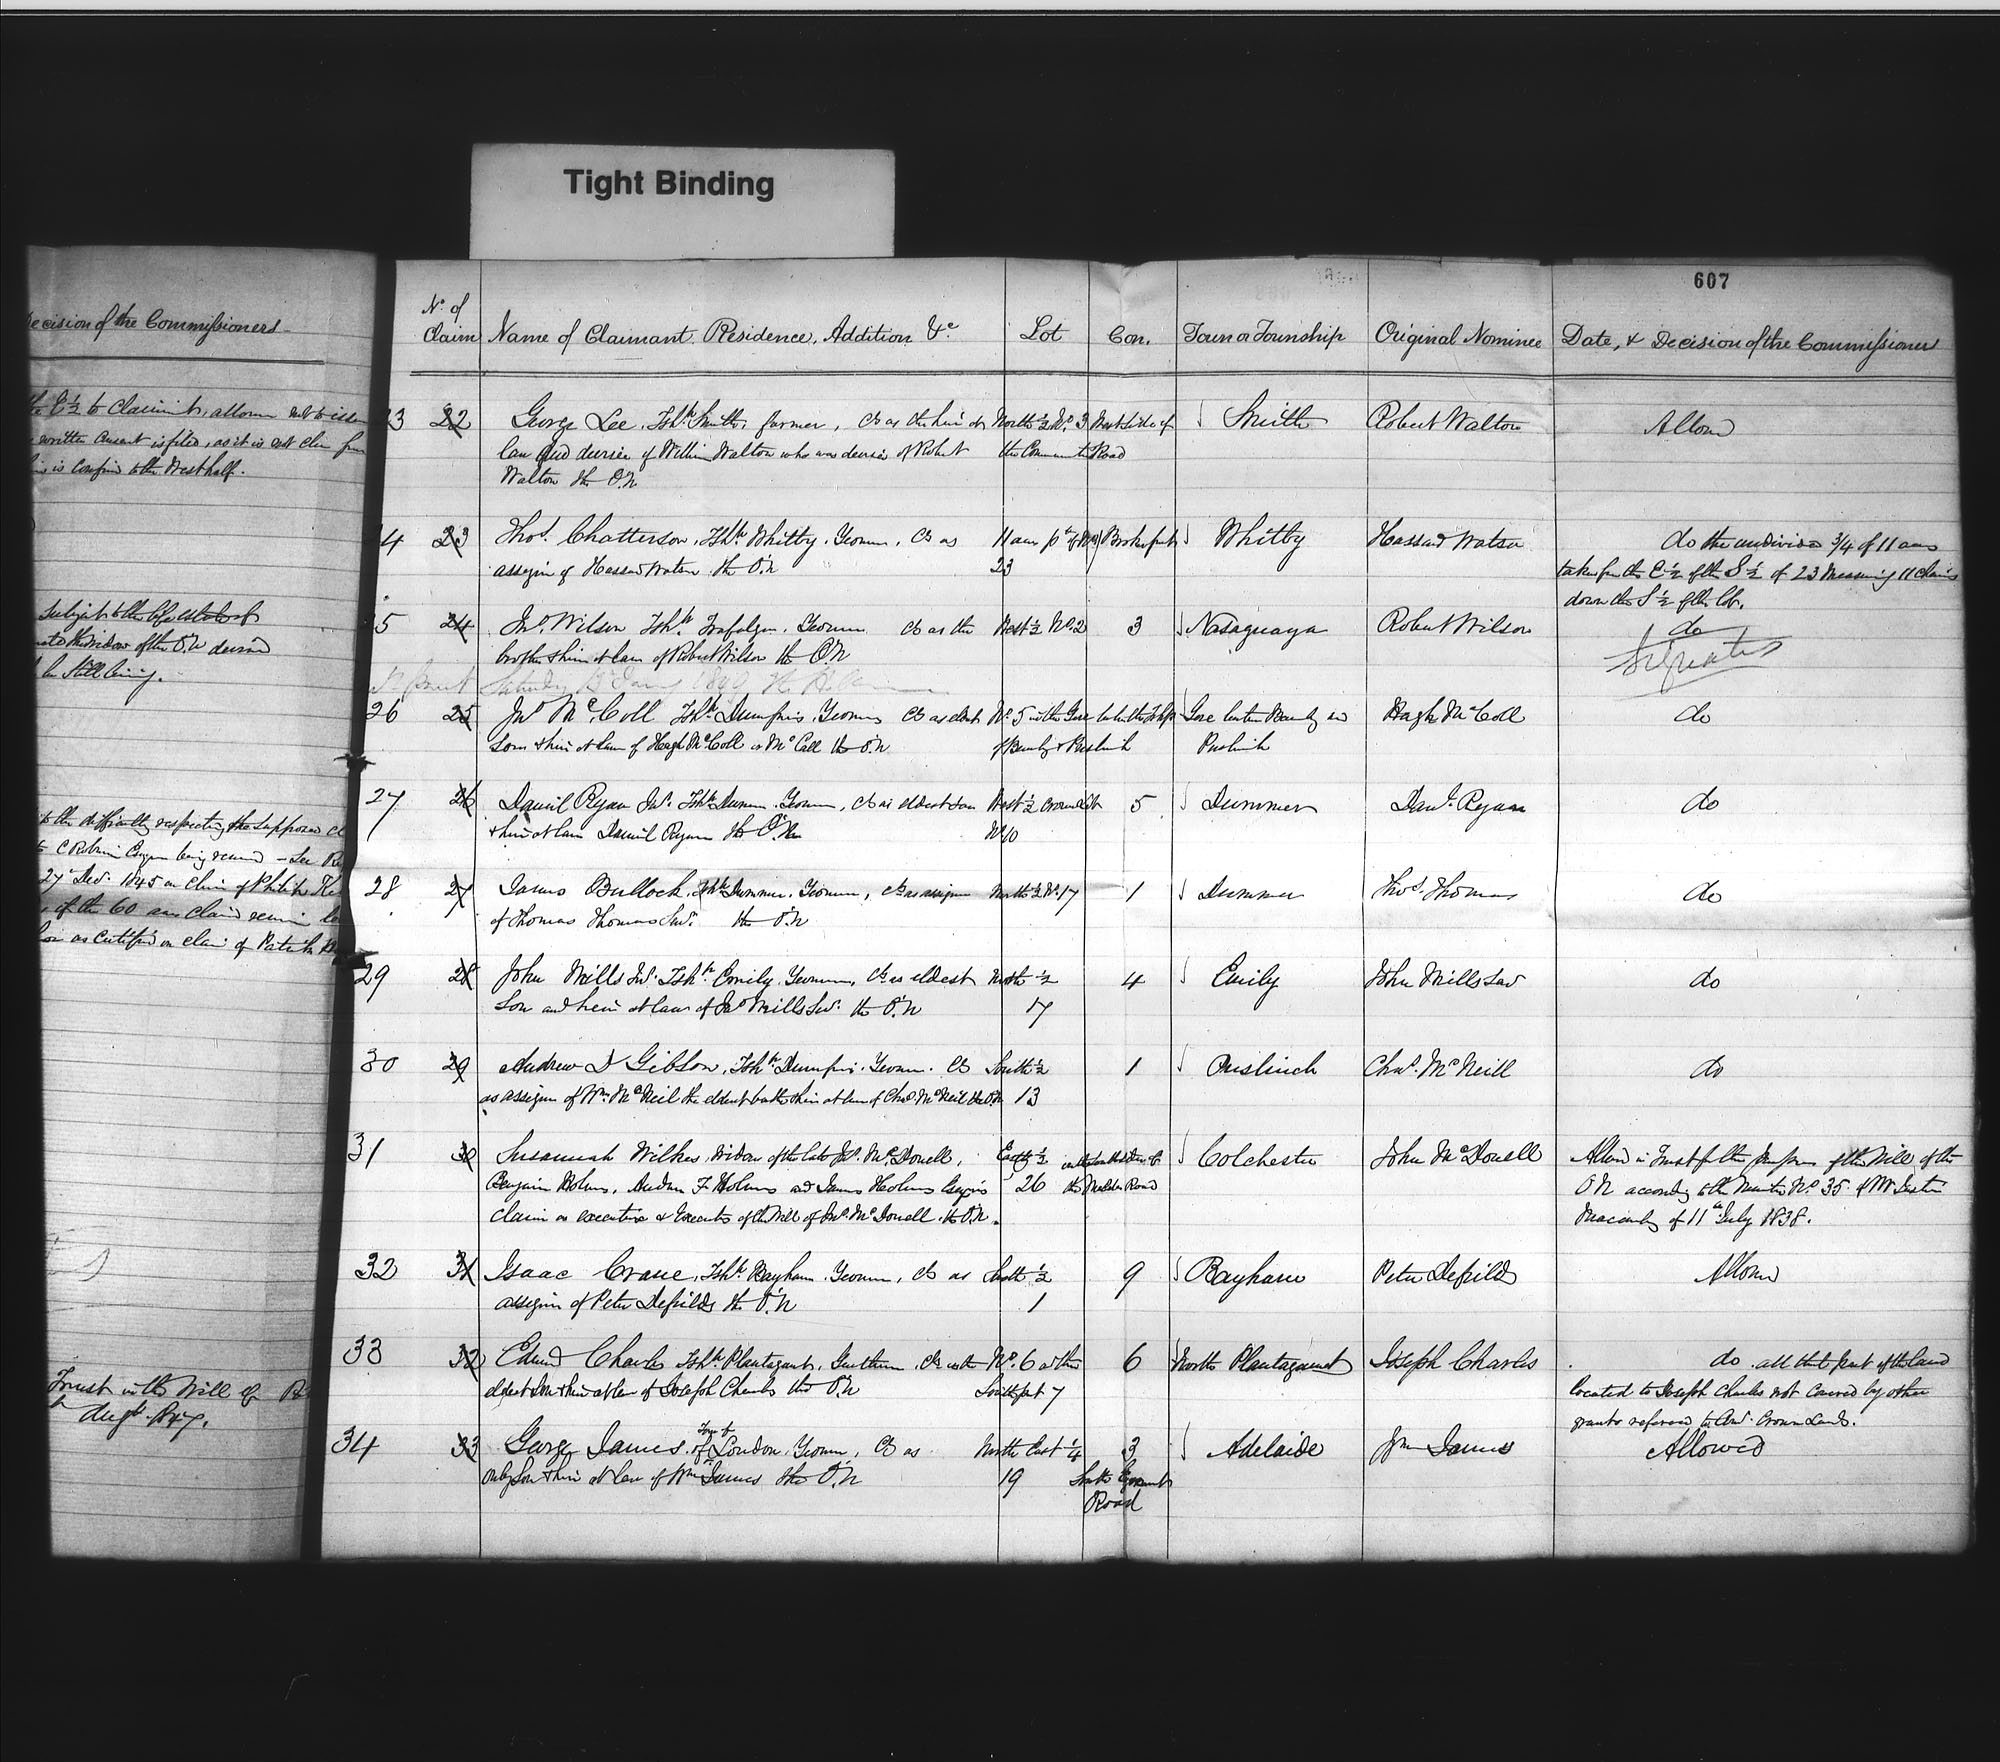 Tight Binding
607
Decision of the Commissioners
the E½ to Claimants, allowed not to issue
written Consent is filed, as it is not clear from
is confined to the West half.
Subject to the life estate of
the Widow of the O.N. devised
be still living.
to the difficulty respecting the supposed
C Robinson Esqre being removed - See
27th Decr. 1845 on Claim of Philip
of the 60 acres claimed
as Certified on Claim of Patrick
Trust in the Will of
Augt. 1847.
No. of Claim Name of Claimant, Residence, Addition &c. Lot Con. Town or Township Original Nominee Date, & Decision of the Commissioners
23 22 George Lee, Tshp. Smith, farmer, Cls as the heir at North ½ No. 3 West side of Smith Robert Walton Allowed
law and devisee of William Walton who was devisee of Robert the Communication Road
Walton the O.N
24 23 Thos. Chatterson, Tshp. Whitby, Yeoman, Cls as 11 acres pt of No. Broken front Whitby Hassard Watson do the undivided 3/4 of 11 acres
assignee of Hassard Watson the O.N 23 taken from the E½ of the S½ of 23 measuring 11 chains
down the S½ of the lot.
25 24 Jno. Wilson Tshp. Trafalgar, Yeoman Cls as the West ½ No. 2 3 Nassagaweya Robert Wilson do
brother & heir at law of Robert Wilson the O.N
Saturday
26 25 Jno. McColl Tshp. Dumfries, Yeoman Cls as eldest No. 5 in the Gore between the Tshps Gore between Beverly and Hugh McColl do
Son & heir at law of Hugh McColl or McCall the O.N of Beverly & Puslinch Puslinch
27 26 Daniel Ryan Jnr. Tshp. Dummer, Yeoman, Cls as eldest son West ½ 5 Dummer Danl. Ryan do
& heir at law Daniel Ryan the O.N No. 10
28 27 James Bullock, Tshp. Dummer, Yeoman, Cls as assignee North ½ No. 17 1 Dummer Thos. Thomas do
of Thomas Thomas Senr. the O.N
29 28 John Mills Jnr. Tshp. Emily, Yeoman, Cls as eldest North ½ 4 Emily John Mills Senr do
Son and heir at law of Jno Mills Senr. the O.N 17
30 29 Andrew D Gibson, Tshp. Dumfries, Yeoman. Cls South ½ 1 Puslinch Chas. McNeill do
as assignee of Wm. McNeil the eldest brother & heir at law of Chas McNeil the O.N 13
31 30 Susannah Wilkes, widow of the late Jno. McDonell, East ½ Colchester John McDonell Allowed in Trust for the purposes of the Will of the
Benjamin Holmes, Andrew F Holmes and James Holmes Esquires 26 the Malden Road O N according to the
claim as executrix & Executors of the Will of Jno. McDonell the O.N. of 11th July 1838.
32 31 Isaac Crane, Tshp. Bayham, Yeoman, Cls as South ½ 9 Bayham Peter Defields Allowed
assignee of Peter Defields the O.N 1
33 32 Edwd Charles Tshp. Plantagenet, Gentleman, Cls as the No. 6 and the 6 North Plantagenet Joseph Charles do. all that part of the land
eldest Son & heir at law of Joseph Charles the O.N South part 7 located to Joseph Charles not covered by other
grants referred to Comr. Crown Lands.
34 33 George James, of Town of London, Yeoman, Cls as North East ¼ 3 Adelaide Wm James Allowed
only Son & heir at law of Wm James the O.N 19 South Egremont
Road